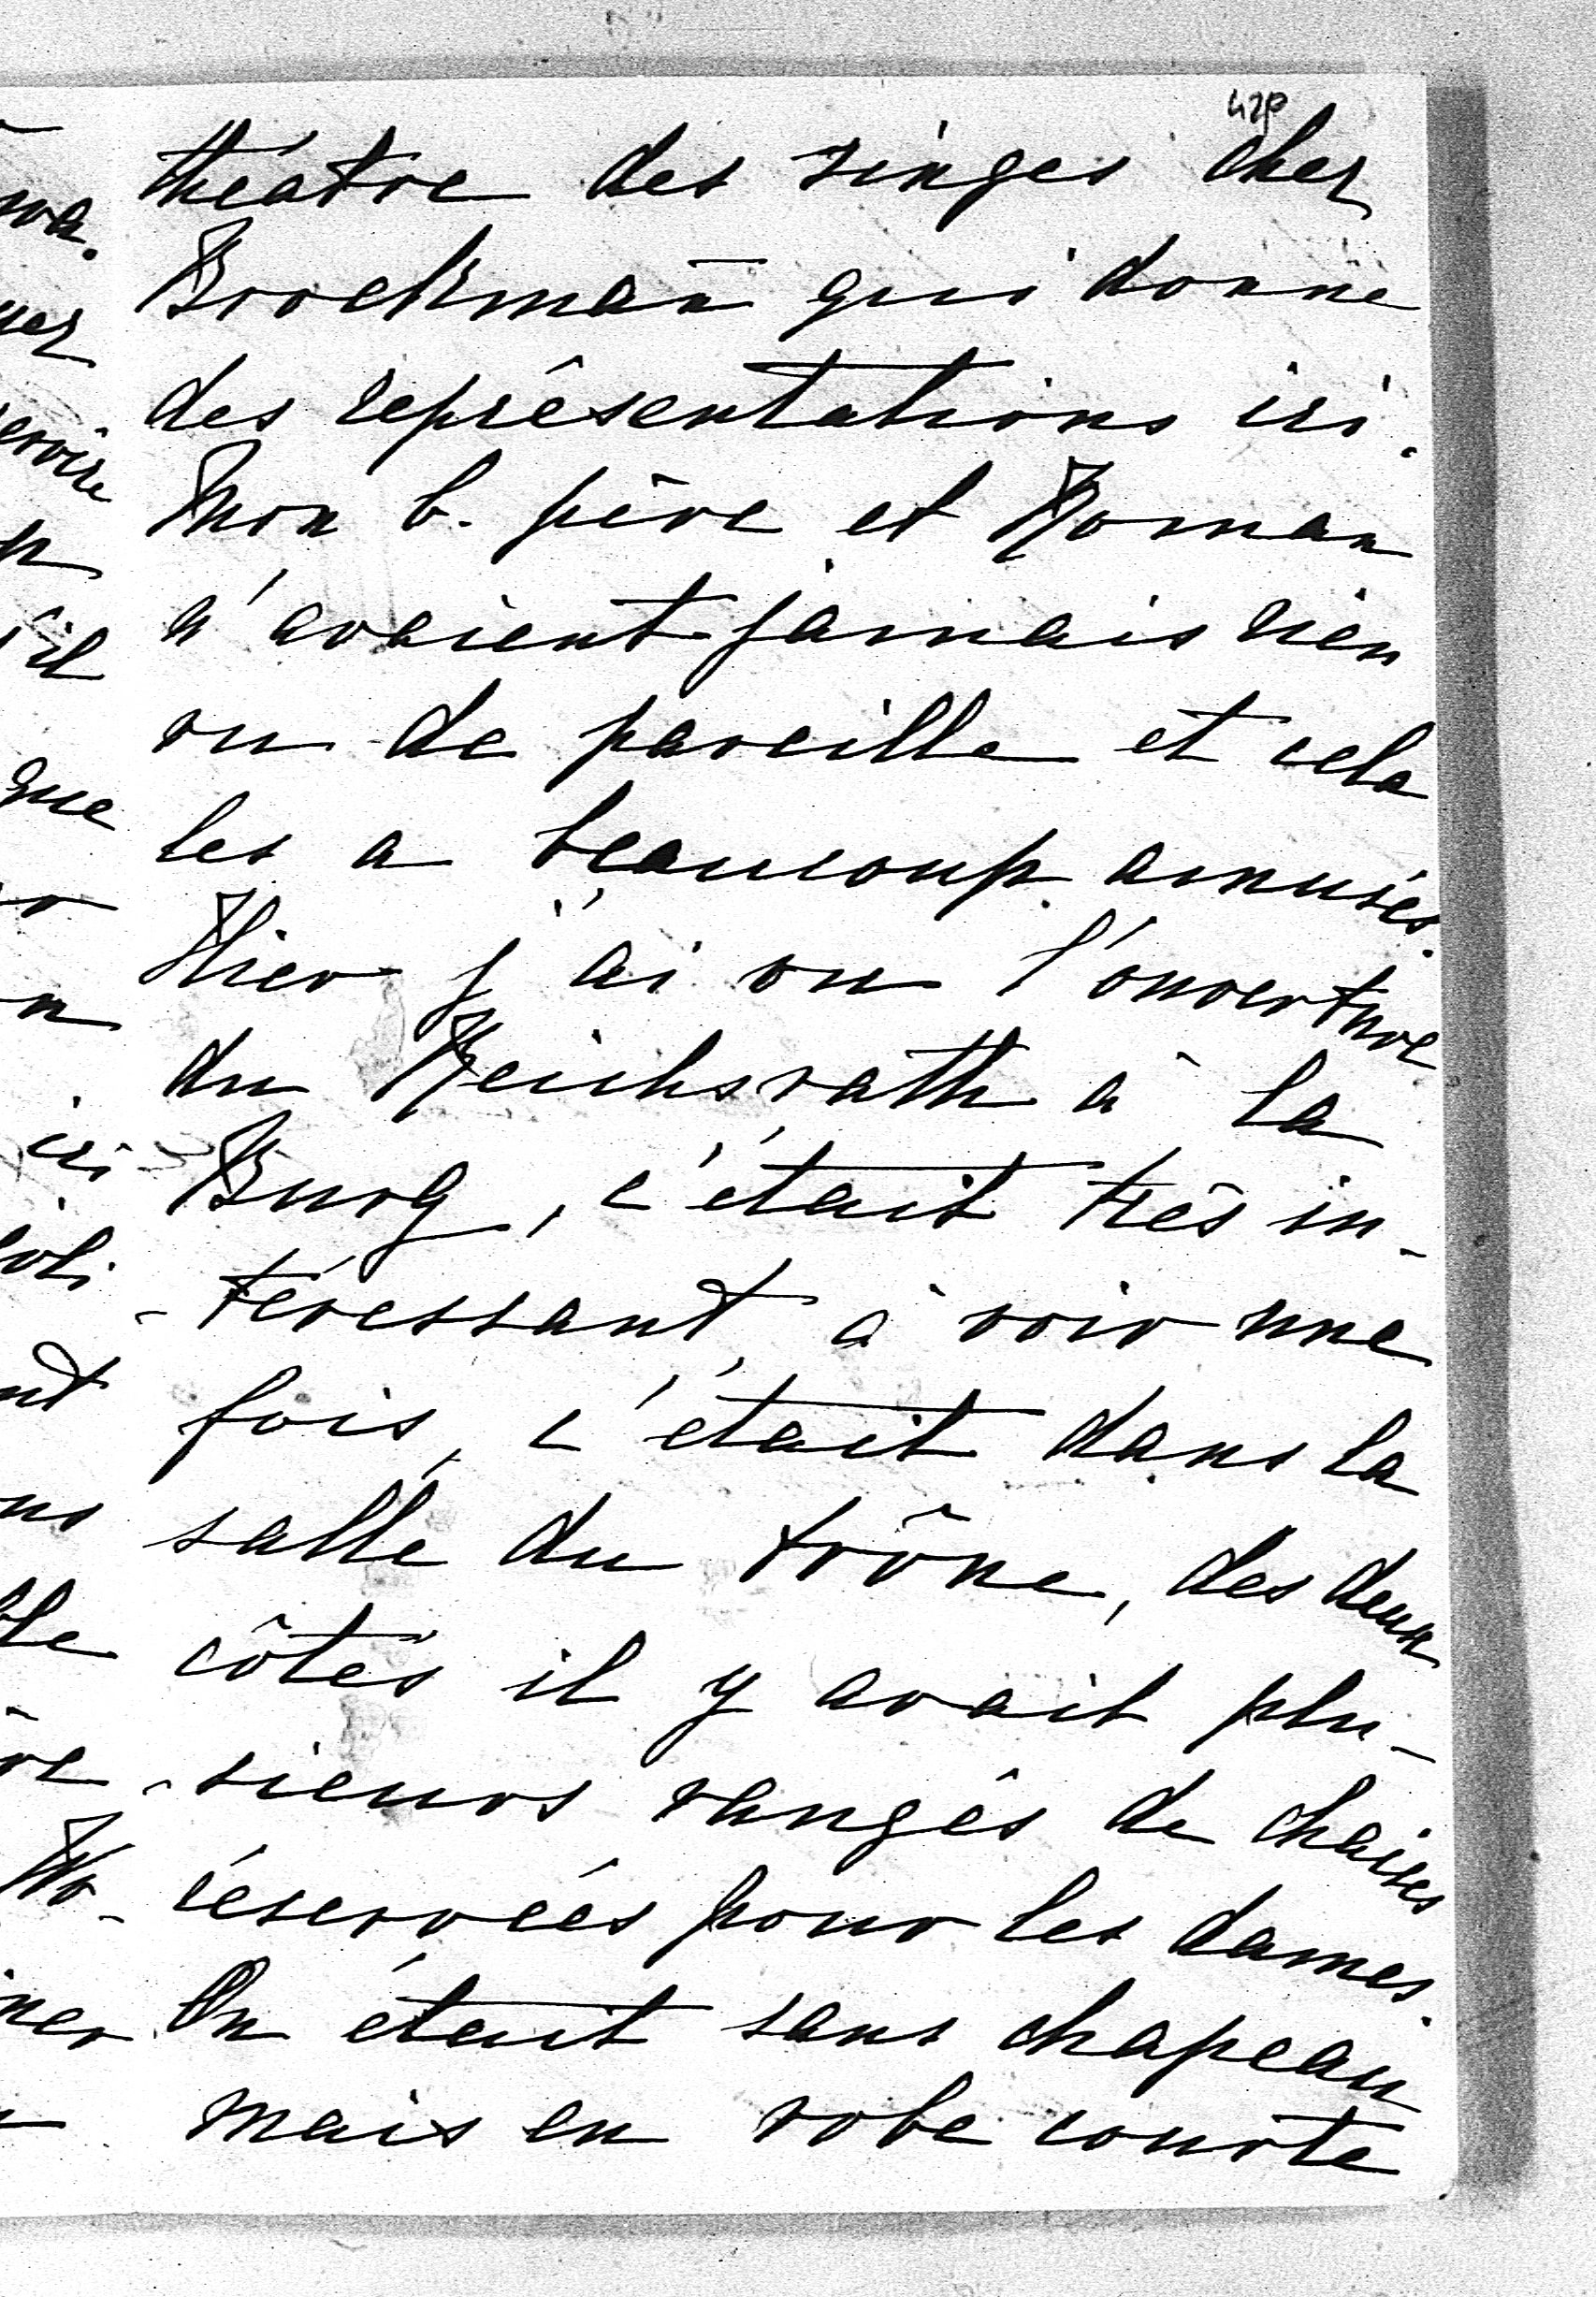 429
théâtre des singes chez
Brockmañ qui donne
des représentations ici.
Mon b. père et Roman
n'avaient jamais rien
vu de pareille et cela
les a beaucoup amusés.
Hier j'ai vu l'ouverture
du Reichsrath à la
Burg, c'était très in-
-téressant à voir une
fois, c'était dans la
salle du trône, des deux
côtés il y avait plu-
-sieurs rangés de chaises
réservées pour les dames.
On était sans chapeau
mais en robe courte